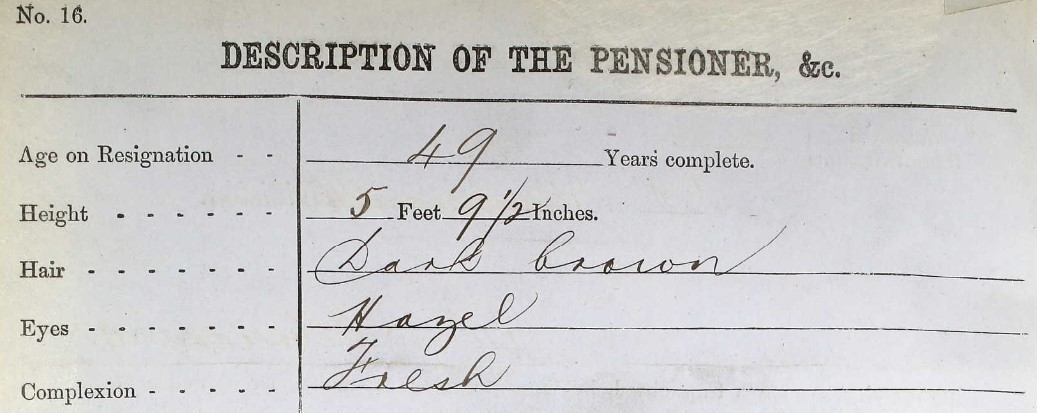 No. 16.
DESCRIPTION OF THE PENSIONER, &c.
Age on Resignation - - 49 Years complete.
Height - - - - - - 5 Feet 9 1/2 Inches.
Hair - - - - - - - Dark brown
Eyes - - - - - - - Hazel
Complexion - - - - - Fresh